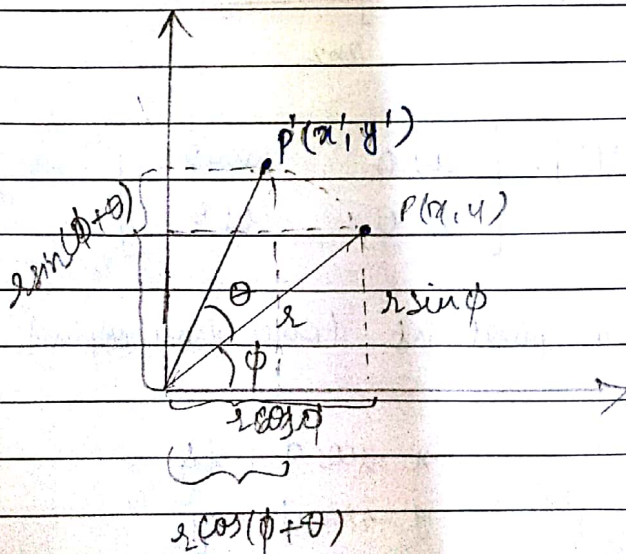 P'(x', y')
P(x, y)
r sin(ϕ+θ)
θ
r
r sin ϕ
ϕ
r cos ϕ
r cos(ϕ+θ)